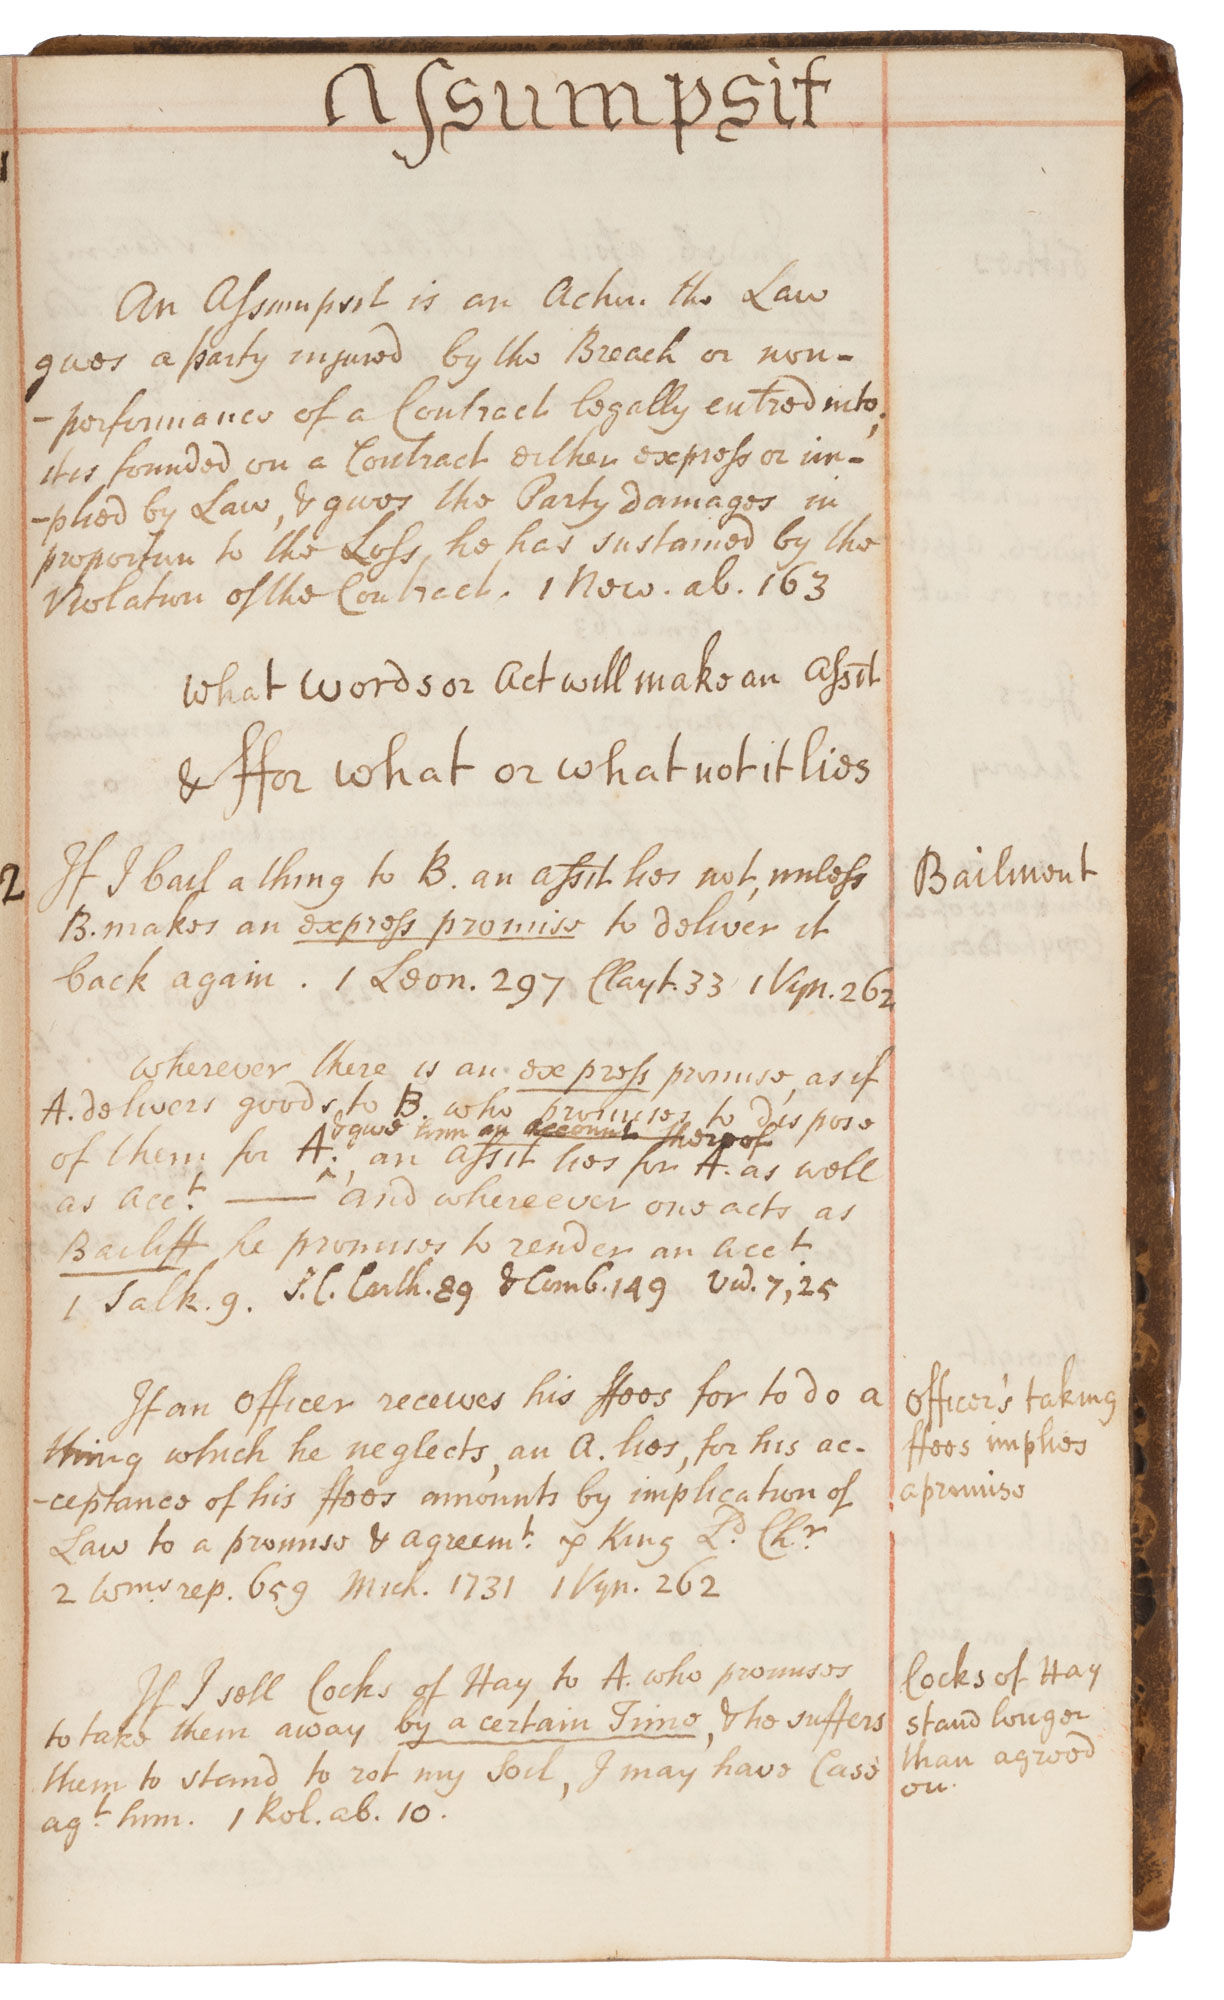 Assumpsit
1
An Assumpsit is an Actiu. the Law
gives a party injured by the Breach or non-
-performance of a Contract legally entred into;
it is founded on a Contract either express or im-
-plied by Law, & gives the Party damages in
proportiun to the Loss he has sustained by the
Violation of the Contract. 1 New. ab. 163
what words or Act will make an Assit
& ffor what or what not it lies
2
If I bail a thing to B. an assit lies not, unless
B. makes an express promise to deliver it
back again. 1 Leon. 297 Clayt. 33 1 Vyn. 262
Bailment
wherever there is an express promise, as if
A. delivers goods to B. who promises to dispose
& give him an account thereof
of them for A. ‸, an assit lies for A. as well
as acct. —— and whereever one acts as
Bailiff he promises to render an acct
1 Salk. 9. S.C. Carth. 89 & Comb. 149 Vid. 7, 25
If an Officer receives his ffees for to do a
thing which he neglects, an A. lies, for his ac-
-ceptance of his ffees amounts by implication of
Law to a promise & agreemt. p King Ld. Chr.
2 Wms. rep. 659 Mich. 1731 1 Vyn. 262
Officer's taking
ffees implies
a promise
If I sell Cocks of Hay to A. who promises
to take them away by a certain Time, & he suffers
them to stand to rot my Soil, I may have Case
agt. him. 1 Rol. ab. 10.
Cocks of Hay
stand longer
than agreed
on.